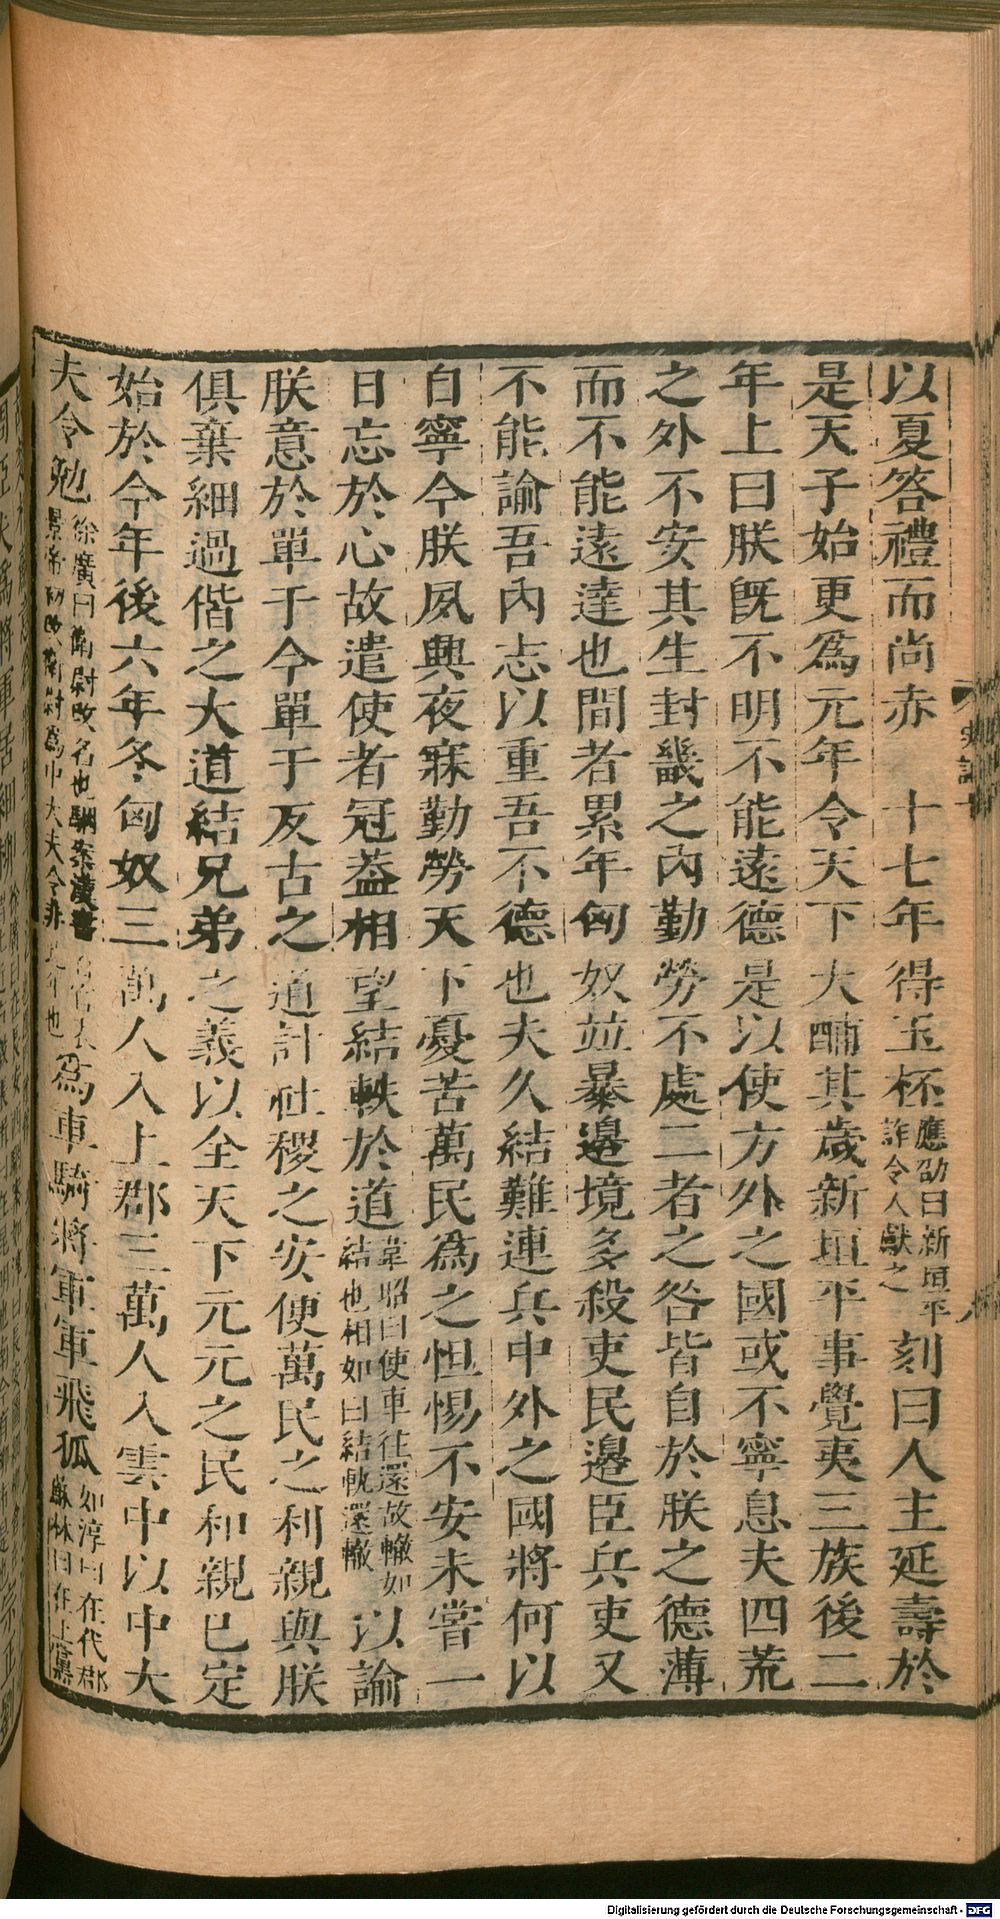 以夏答禮而尚赤　十七年得玉杯應劭曰新垣平詐令人獻之刻曰人主延壽於
是天子始更為元年令天下大酺其歲新垣平事覺夷三族後二
年上曰朕旣不明不能遠德是以使方外之國或不寧息夫四荒
之外不安其生封畿之內勤勞不處二者之咎皆自於朕之德薄
而不能遠達也間者累年匈奴並暴邊境多殺吏民邊臣兵吏又
不能諭吾內志以重吾不德也夫久結難連兵中外之國將何以
自寧今朕夙興夜寐勤勞天下憂苦萬民爲之怛惕不安未嘗一
日忘於心故遣使者冠蓋相望結軼於道韋昭曰使車往還故轍如結也相如曰結軌還轍以諭
朕意於單于今單于反古之道計社稷之安便萬民之利親與朕
俱棄細過偕之大道結兄弟之義以全天下元元之民和親已定
始於今年後六年冬匈奴三萬人入上郡三萬人入雲中以中大
夫令勉徐廣曰衞尉改名也駰案漢書景帝初改衞尉爲中大夫令非也爲車騎將軍軍飛狐如淳曰在代郡蘇林曰在上黨
史記十
Digitalisierung gefördert durch die Deutsche Forschungsgemeinschaft - DFG